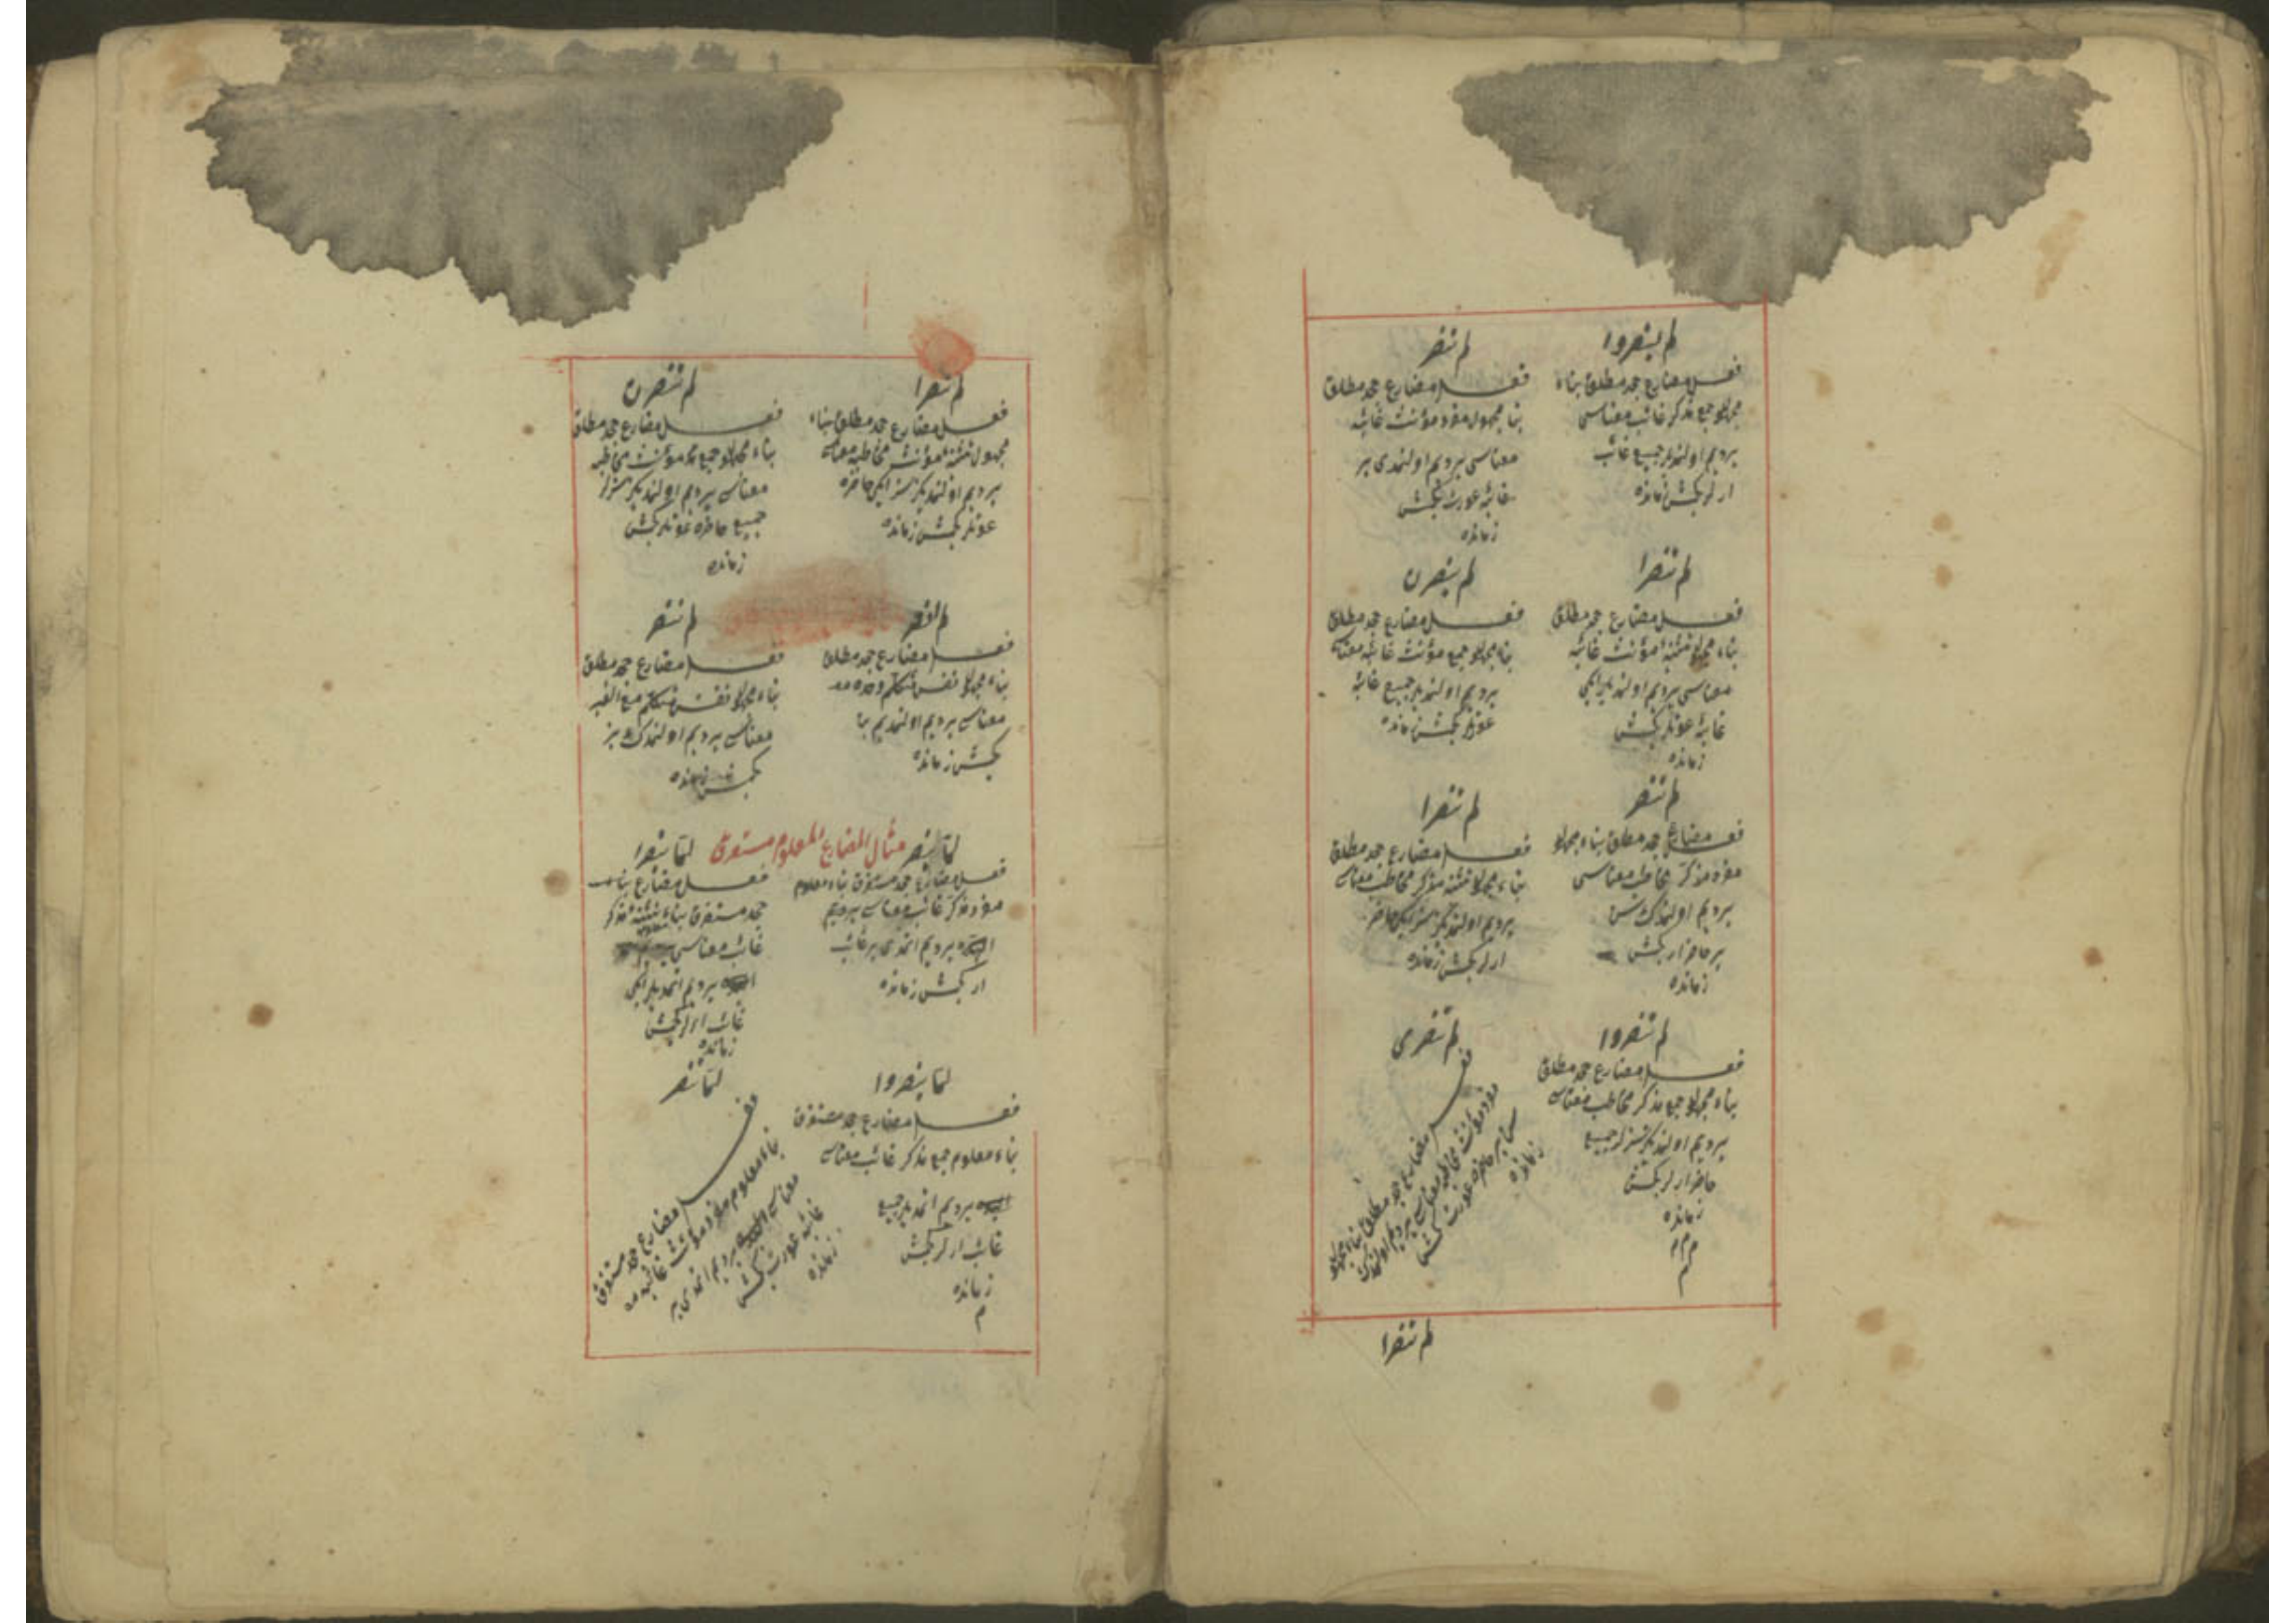 لم ينصروا
فعل مضارع جحد مطلق بناء
مجهول جمع مذكر غائب معناسى
يرديم اولنمديلر جميع غائب
ارلر كچمش زمانده
لم تنصر
فعل مضارع جحد مطلق
بناء مجهول مفرد مؤنث غائبه
معناسى يرديم اولنمدى بر
غائبه عورت كچمش
زمانده
لم تنصرا
فعل مضارع جحد مطلق
بناء مجهول تثنيه مؤنث غائبه
معناسى يرديم اولنمديلر ايكى
غائبه عونلر كچمش
زمانده
لم ينصرن
فعل مضارع جحد مطلق
بناء مجهول جمع مؤنث غائبه معناسى
يرديم اولنمديلر جميع غائبه
عونلر كچمش زمانده
لم تنصر
فعل مضارع جحد مطلق بناء مجهول
مفرد مذكر مخاطب معناسى
يرديم اولنمدك سن
بر حاضر ار كچمش
زمانده
لم تنصرا
فعل مضارع جحد مطلق
بناء مجهول تثنيه مذكر مخاطب معناسى
يرديم اولنمديكز سز ايكى حاضر
ارلر كچمش زمانده
لم تنصروا
فعل مضارع جحد مطلق
بناء مجهول جمع مذكر مخاطب معناسى
يرديم اولنمديكز سزلر جميع
حاضر ارلر كچمش
زمانده
م م م
م
لم تنصرى
فعل مضارع جحد مطلق بناء مجهول
مفرد مؤنث مخاطبه معناسى يرديم اولنمدك
سن بر حاضره عورت كچمش
زمانده
لم تنصرا
لم تنصرا
فعل مضارع جحد مطلق بناء
مجهول تثنيه مؤنث مخاطبه معناسى
يرديم اولنمديكز سز ايكى حاضره
عونلر كچمش زمانده
لم تنصرن
فعل مضارع جحد مطلق
بناء مجهول جمع مؤنث مخاطبه
معناسى يرديم اولنمديكز سزلر
جميع حاضره عونلر كچمش
زمانده
لم انصر
فعل مضارع جحد مطلق
بناء مجهول نفس متكلم وحده
معناسى يرديم اولنمديم بن
كچمش زمانده
لم ننصر
فعل مضارع جحد مطلق
بناء مجهول نفس متكلم مع الغير
معناسى يرديم اولنمدك بز
كچمش زمانده
مثال المضارع المعلوم مستغرق
لما ينصر
فعل مضارع جحد مستغرق بناء معلوم
مفرد مذكر غائب معناسى يرديم
يرديم اتمدى بر غائب
ار كچمش زمانده
لما ينصرا
فعل مضارع بناء
جحد مستغرق بناء معلوم تثنيه مذكر
غائب معناسى
يرديم اتمديلر ايكى
غائب ارلر كچمش
زمانده
لما ينصروا
فعل مضارع جحد مستغرق
بناء معلوم جمع مذكر غائب معناسى
يرديم اتمديلر جميع
غائب ارلر كچمش
زمانده
م
لما تنصر
فعل مضارع جحد مستغرق
بناء معلوم مفرد مؤنث غائبه
معناسى يرديم اتمدى بر
غائبه عورت كچمش
زمانده